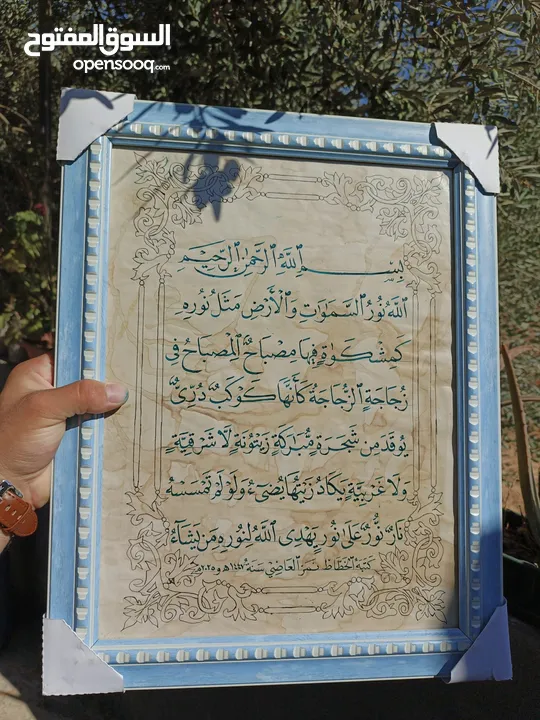 السوق المفتوح
opensooq.com
بِسْمِ اللَّهِ الرَّحْمَنِ الرَّحِيمِ
اللَّهُ نُورُ السَّمَوَاتِ وَالْأَرْضِ مَثَلُ نُورِهِ
كَمِشْكَوٰةٍ فِيهَا مِصْبَاحٌ الْمِصْبَاحُ فِي
زُجَاجَةٍ الزُّجَاجَةُ كَأَنَّهَا كَوْكَبٌ دُرِّيٌّ
يُوقَدُ مِنْ شَجَرَةٍ مُبَارَكَةٍ زَيْتُونَةٍ لَا شَرْقِيَّةٍ
وَلَا غَرْبِيَّةٍ يَكَادُ زَيْتُهَا يُضِيءُ وَلَوْ لَمْ تَمْسَسْهُ
نَارٌ نُورٌ عَلَى نُورٍ يَهْدِي اللَّهُ لِنُورِهِ مَنْ يَشَاءُ
كتبه الخطاط نمر العاضي سنة ١٤٤٧هـ و٢٠٢٥م